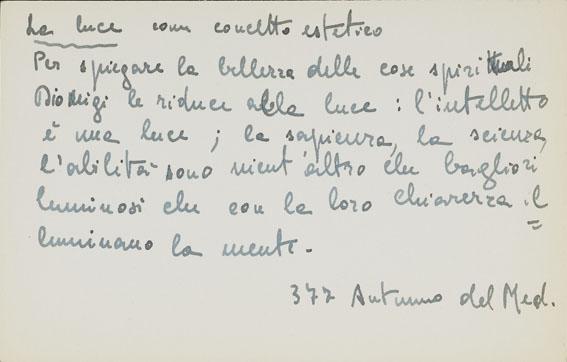 La luce come concetto estetico
Per spiegare la bellezza delle cose spirituali
Dionigi le riduce alla luce : l'intelletto
è una luce ; la sapienza, la scienza,
l'abilità sono nient'altro che bagliori
luminosi che con la loro chiarezza il
luminano la mente.
377 Autunno del Med.